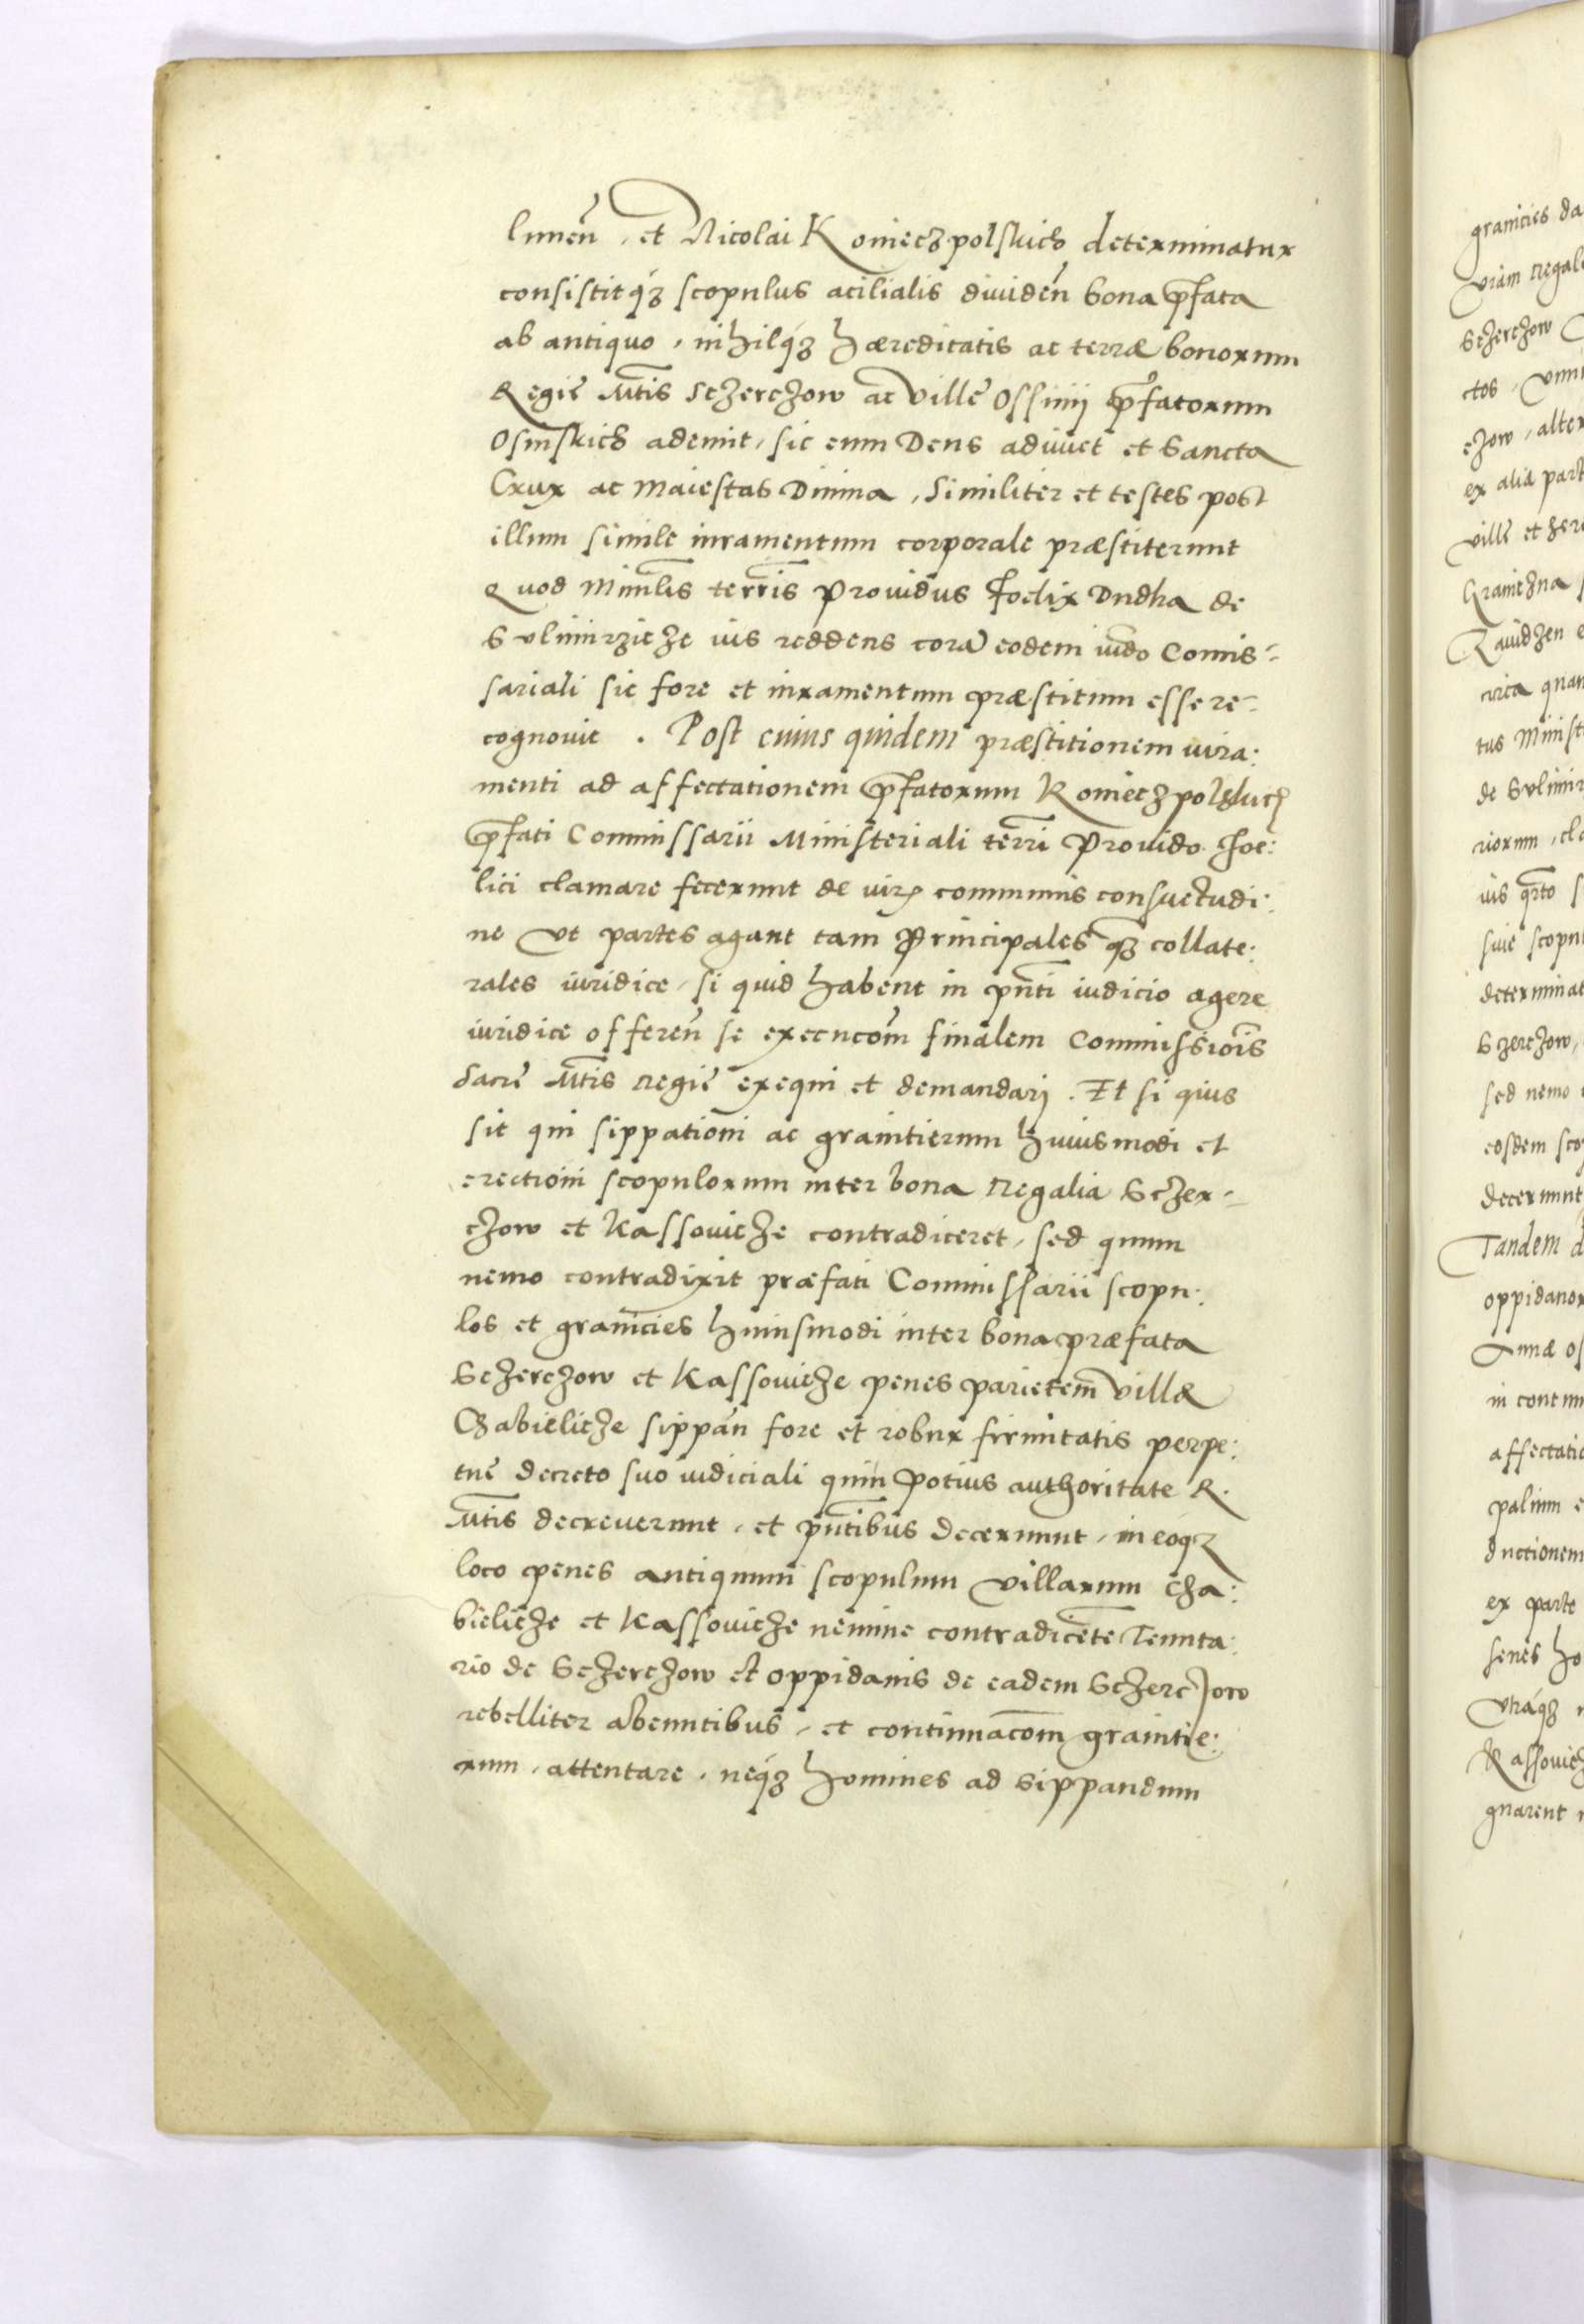 limeñ, et Nicolai Konieczpolskich determinatur
consistitq́ꝫ scopulus acilialis diuideñ bona p̄fata
ab antiquo, nihilq́ꝫ hæreditatis ac terræ bonorum
Regie Mtis Sczerczow ac Ville Ossinij p̄fatorum
Osinskich ademit, sic eum Deus adiuuet et Sancta
Crux ac Maiestas Diuina, Similiter et testes post
illum simile iuramentum corporale præstiterunt
Quod Minrlis terris Prouidus Foelix Dudka de
Sulimirzicze ius reddens corã eodem iudo Comis-
sariali sic fore et iuramentum præstitum esse re-
cognouit. Post cuius quidem præstitionem iura:
menti ad affectationem p̄fatorum Konieczpolskich
p̄fati Commissarii Ministeriali terri Prouido Foe:
lici clamare fecerunt de iurꝫ communis consuetudi:
ne Vt partes agant tam Principales qꝫ collate:
rales iuridice, si quid habent in pn̄ti iudicio agere
iuridice offereñ se execucōm finalem Commissiois
Sacre Mtis Regie exequi et demandarj. Et si quis
sit qui sippationi ac granitierum huiusmodi et
erectioni scopulorum inter bona Regalia Sczer-
czow et Kassouicze contradiceret, sed quum
nemo contradixit præfati Commissarii scopu:
los et granicies huiusmodi inter bona præfata
Sczerczow et Kassouicze penes parietem Villæ
Chabielicze sippañ fore et robur firmitatis perpe:
tue decreto suo iudiciali quin potius authoritate R.
Mtis decreuerunt, et pn̄tibus decernunt, in eoqꝫ
loco penes antiquum scopulum Villarum Cha:
bielicze et Kassouicze nemine contradicente Tenuta:
rio de Sczerczow et oppidanis de eadem Sczerczow
rebelliter abeuntibus, et continuacōm granitie:
rum, attentare, neq́ꝫ homines ad Sippandum
granities da
Sczerczow
ctos
czow, alter
ex alia part
ville et her
circa quam
tus Minist
de Sulimir
riorum, cla
suie scopu
determinat
Szerczow,
sed nemo
eosdem sco
decernunt
Tandem d
oppidanor
in contum
affectatio
palium e
ductionem
ex parte
senes ho
Vtraq́ꝫ
Kassouicz
gnarent